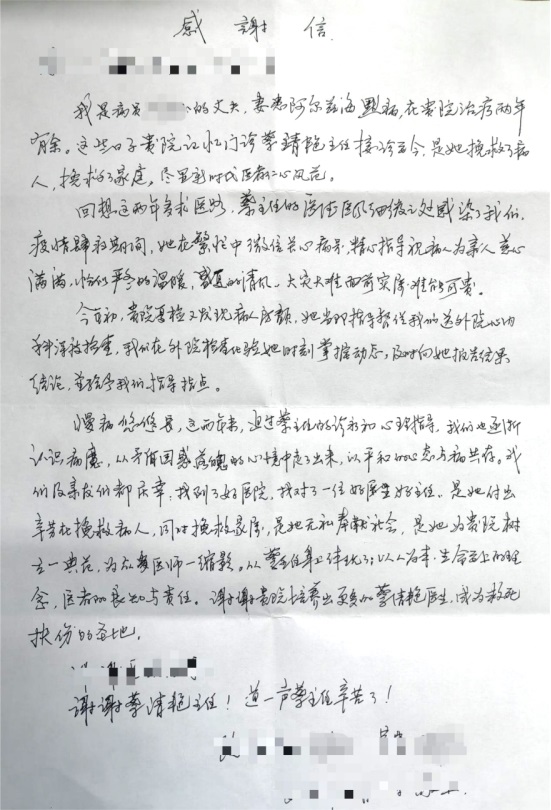 感謝信
我是病员的丈夫，妻患阿尔兹海默病，在贵院治疗两年
有余。这些日子贵院记忆门诊蔡清艳主任接诊至今，是她挽救了病
人，挽救了家庭。尽显新时代医者仁心风范。
回想这两年多求医路，蔡主任的医德医风细微之处感染了我们。
疫情肆虐期间，她在繁忙中微信关心病号，精心指导视病人为亲人爱心
满满，恰似严冬的温暖，盛夏的清风。大灾大难面前实属难能可贵。
今年初，贵院复检又发现病人房颤，她当即指导督促我们送外院心内
科深被检查，我们在外院检查化验她时刻掌握动态，及时向她报告结果
结论，并给予我们指导指点。
慢病悠悠长，这两年来，通过蔡主任的诊疗和心理指导，我们也逐渐
认识病魔，从矛盾困惑落魄的心境中走了出来，以平和的心态与病共存。我
们及亲友们都庆幸：找到了好医院，找对了一位好医生好主任。是她付出
辛苦在挽救病人，同时挽救家属，是她无私奉献社会，是她为贵院树
立一典范，为众多医师一缩影。从蔡主任身上体现了：以人为本，生命至上的理
念，医者的良知与责任。谢谢贵院培养出更多的蔡清艳医生，成为救死
扶伤的圣地。
谢谢蔡清艳主任！道一声蔡主任辛苦了！